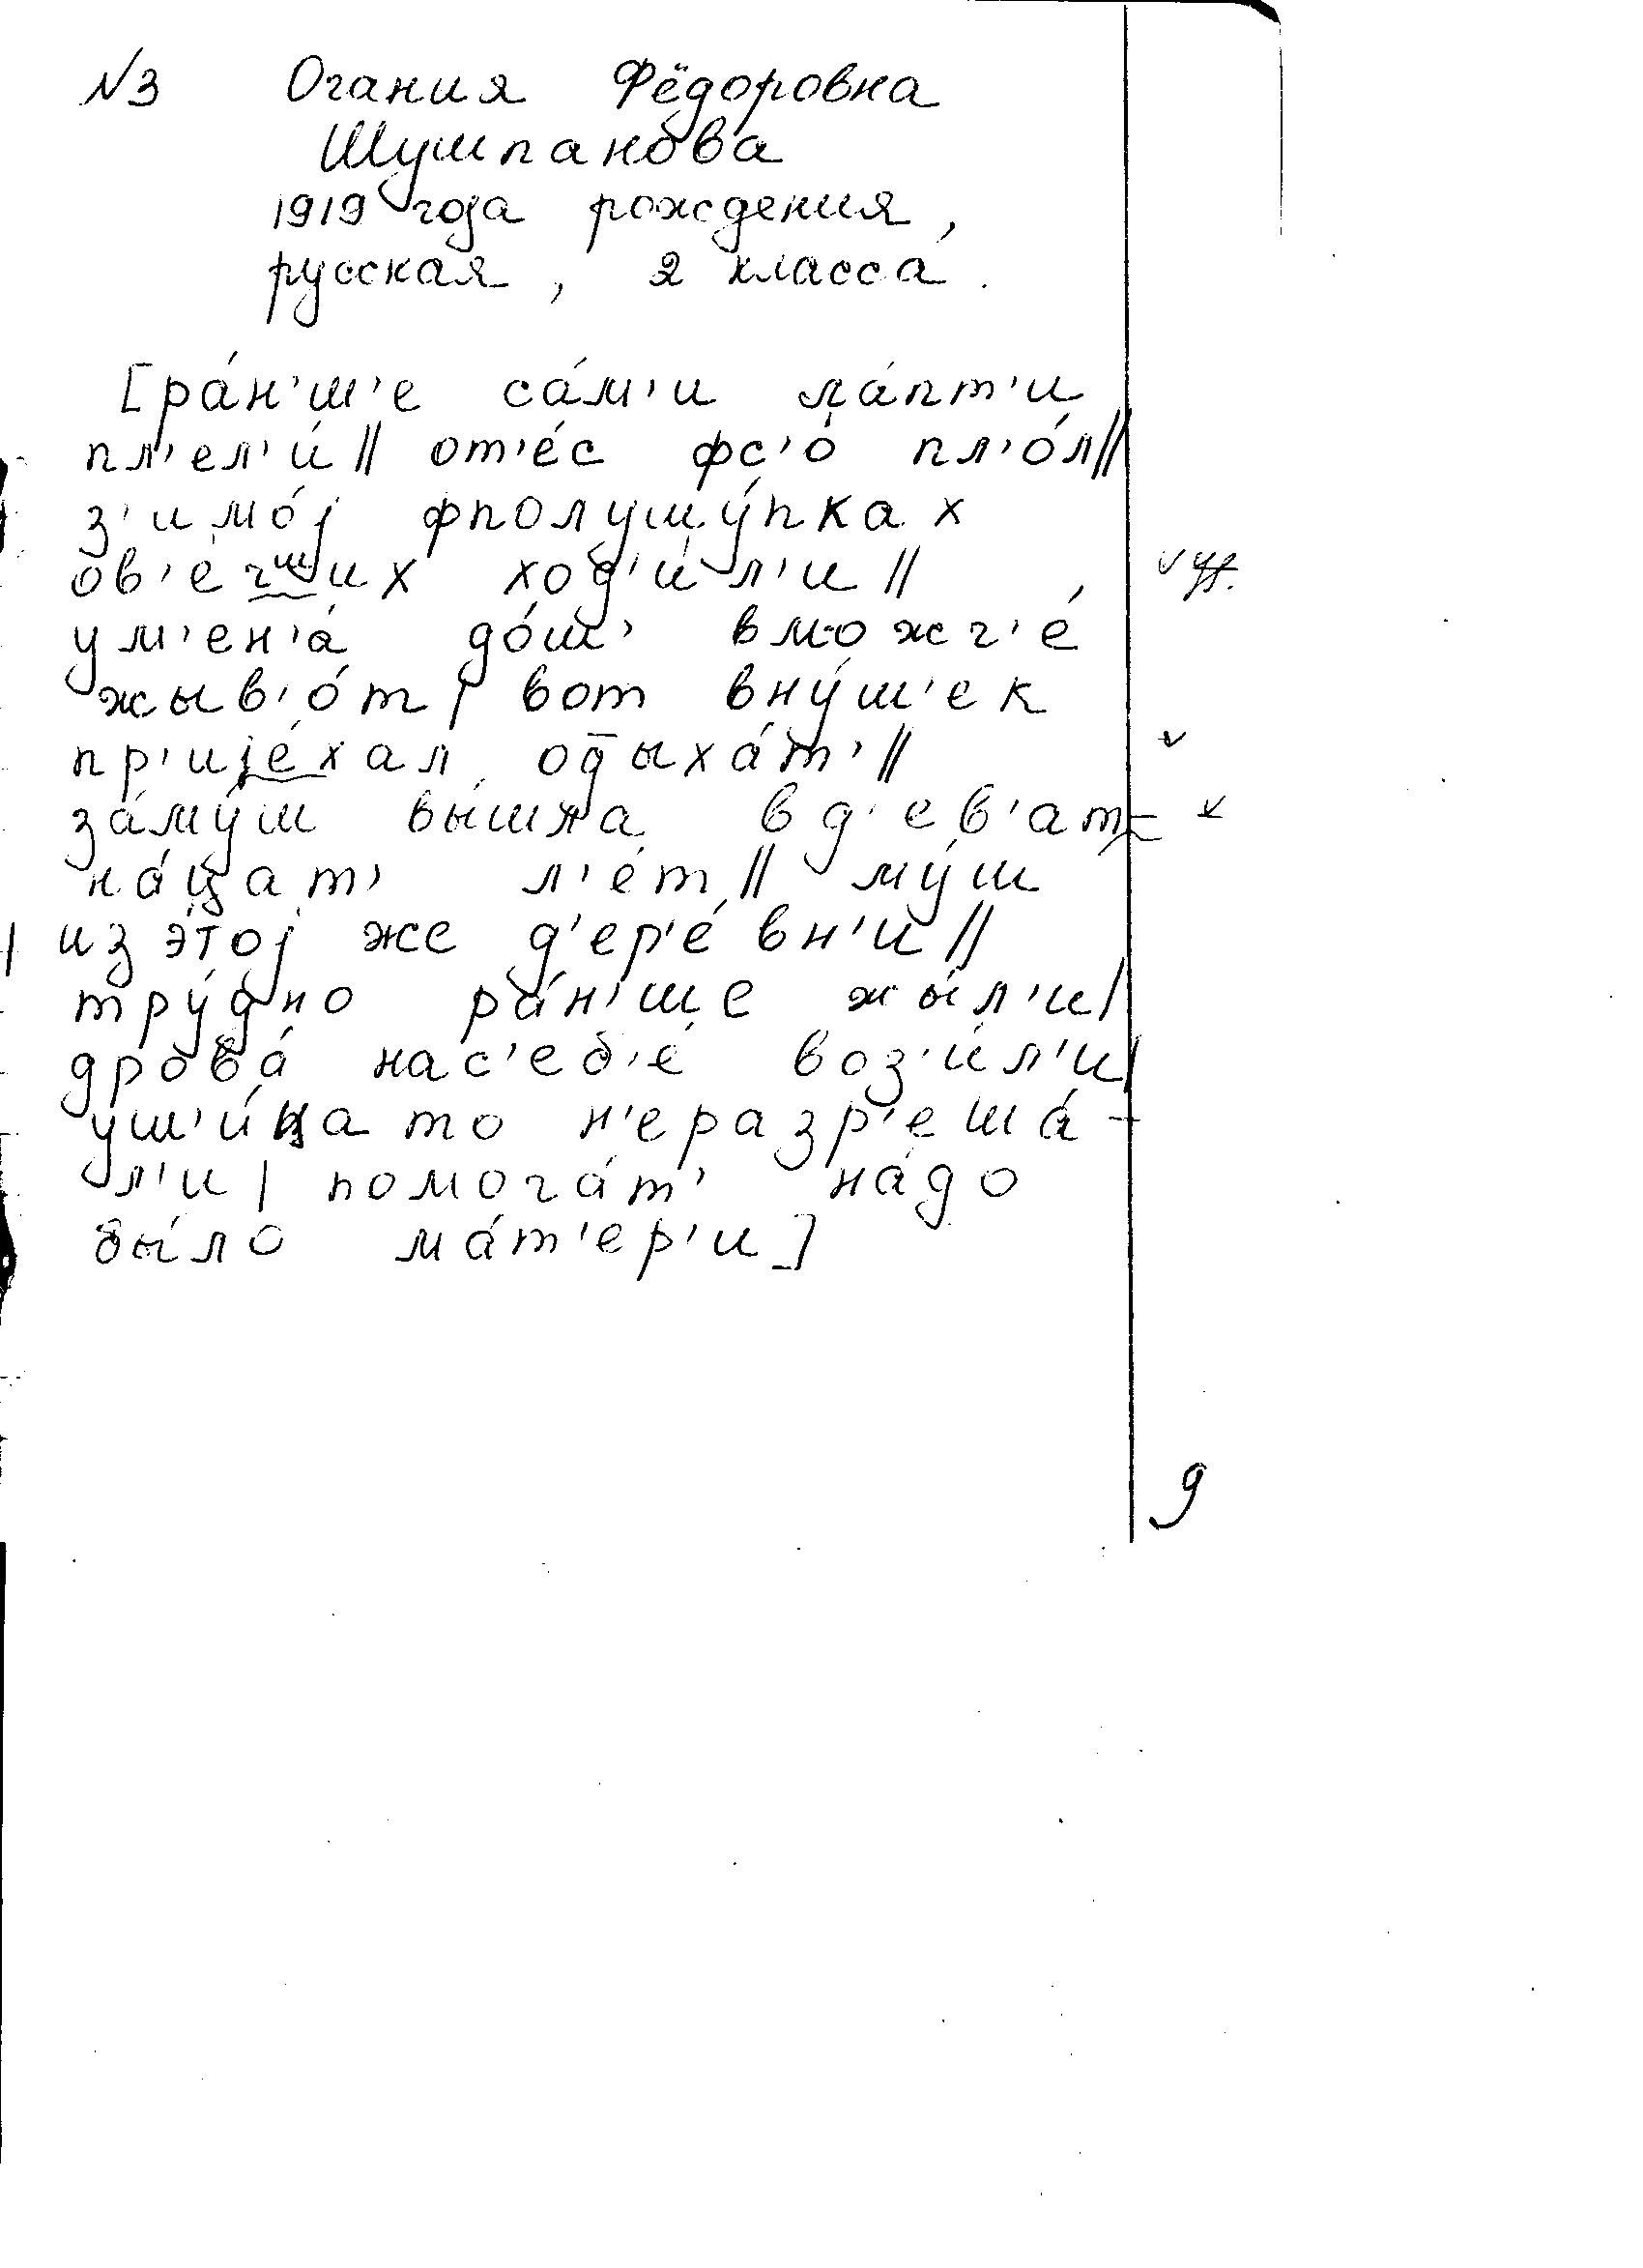 №3 Огания Фёдоровна
Шушпанова
1919 года рождения,
русская, 2 класса.
[ра́н'ш'е са́м'и ла́пт'и
пл'ел'и́ || от'е́с фс'о́ пл'о́л ||
з'имо́j фполушу́пках
ов'е́чших ход'и́л'и ||
ум'ен'а́ до́ш' вможг'е́
жыв'о́т | вот вну́ш'ек
пр'иjе́хал од̅ыха́т' ||
за́му́ш вы́шла вд'ев'ат-
на́цат' л'е́т || му́ш
из э́тоj же д'ер'е́вн'и ||
тру́дно ра́н'ше жы́л'и |
дрова́ нас'еб'е́ воз'и́л'и |
уш'и́цато н'еразр'еша́-
л'и | помога́т' на́до
бы́ло ма́т'ер'и]
9